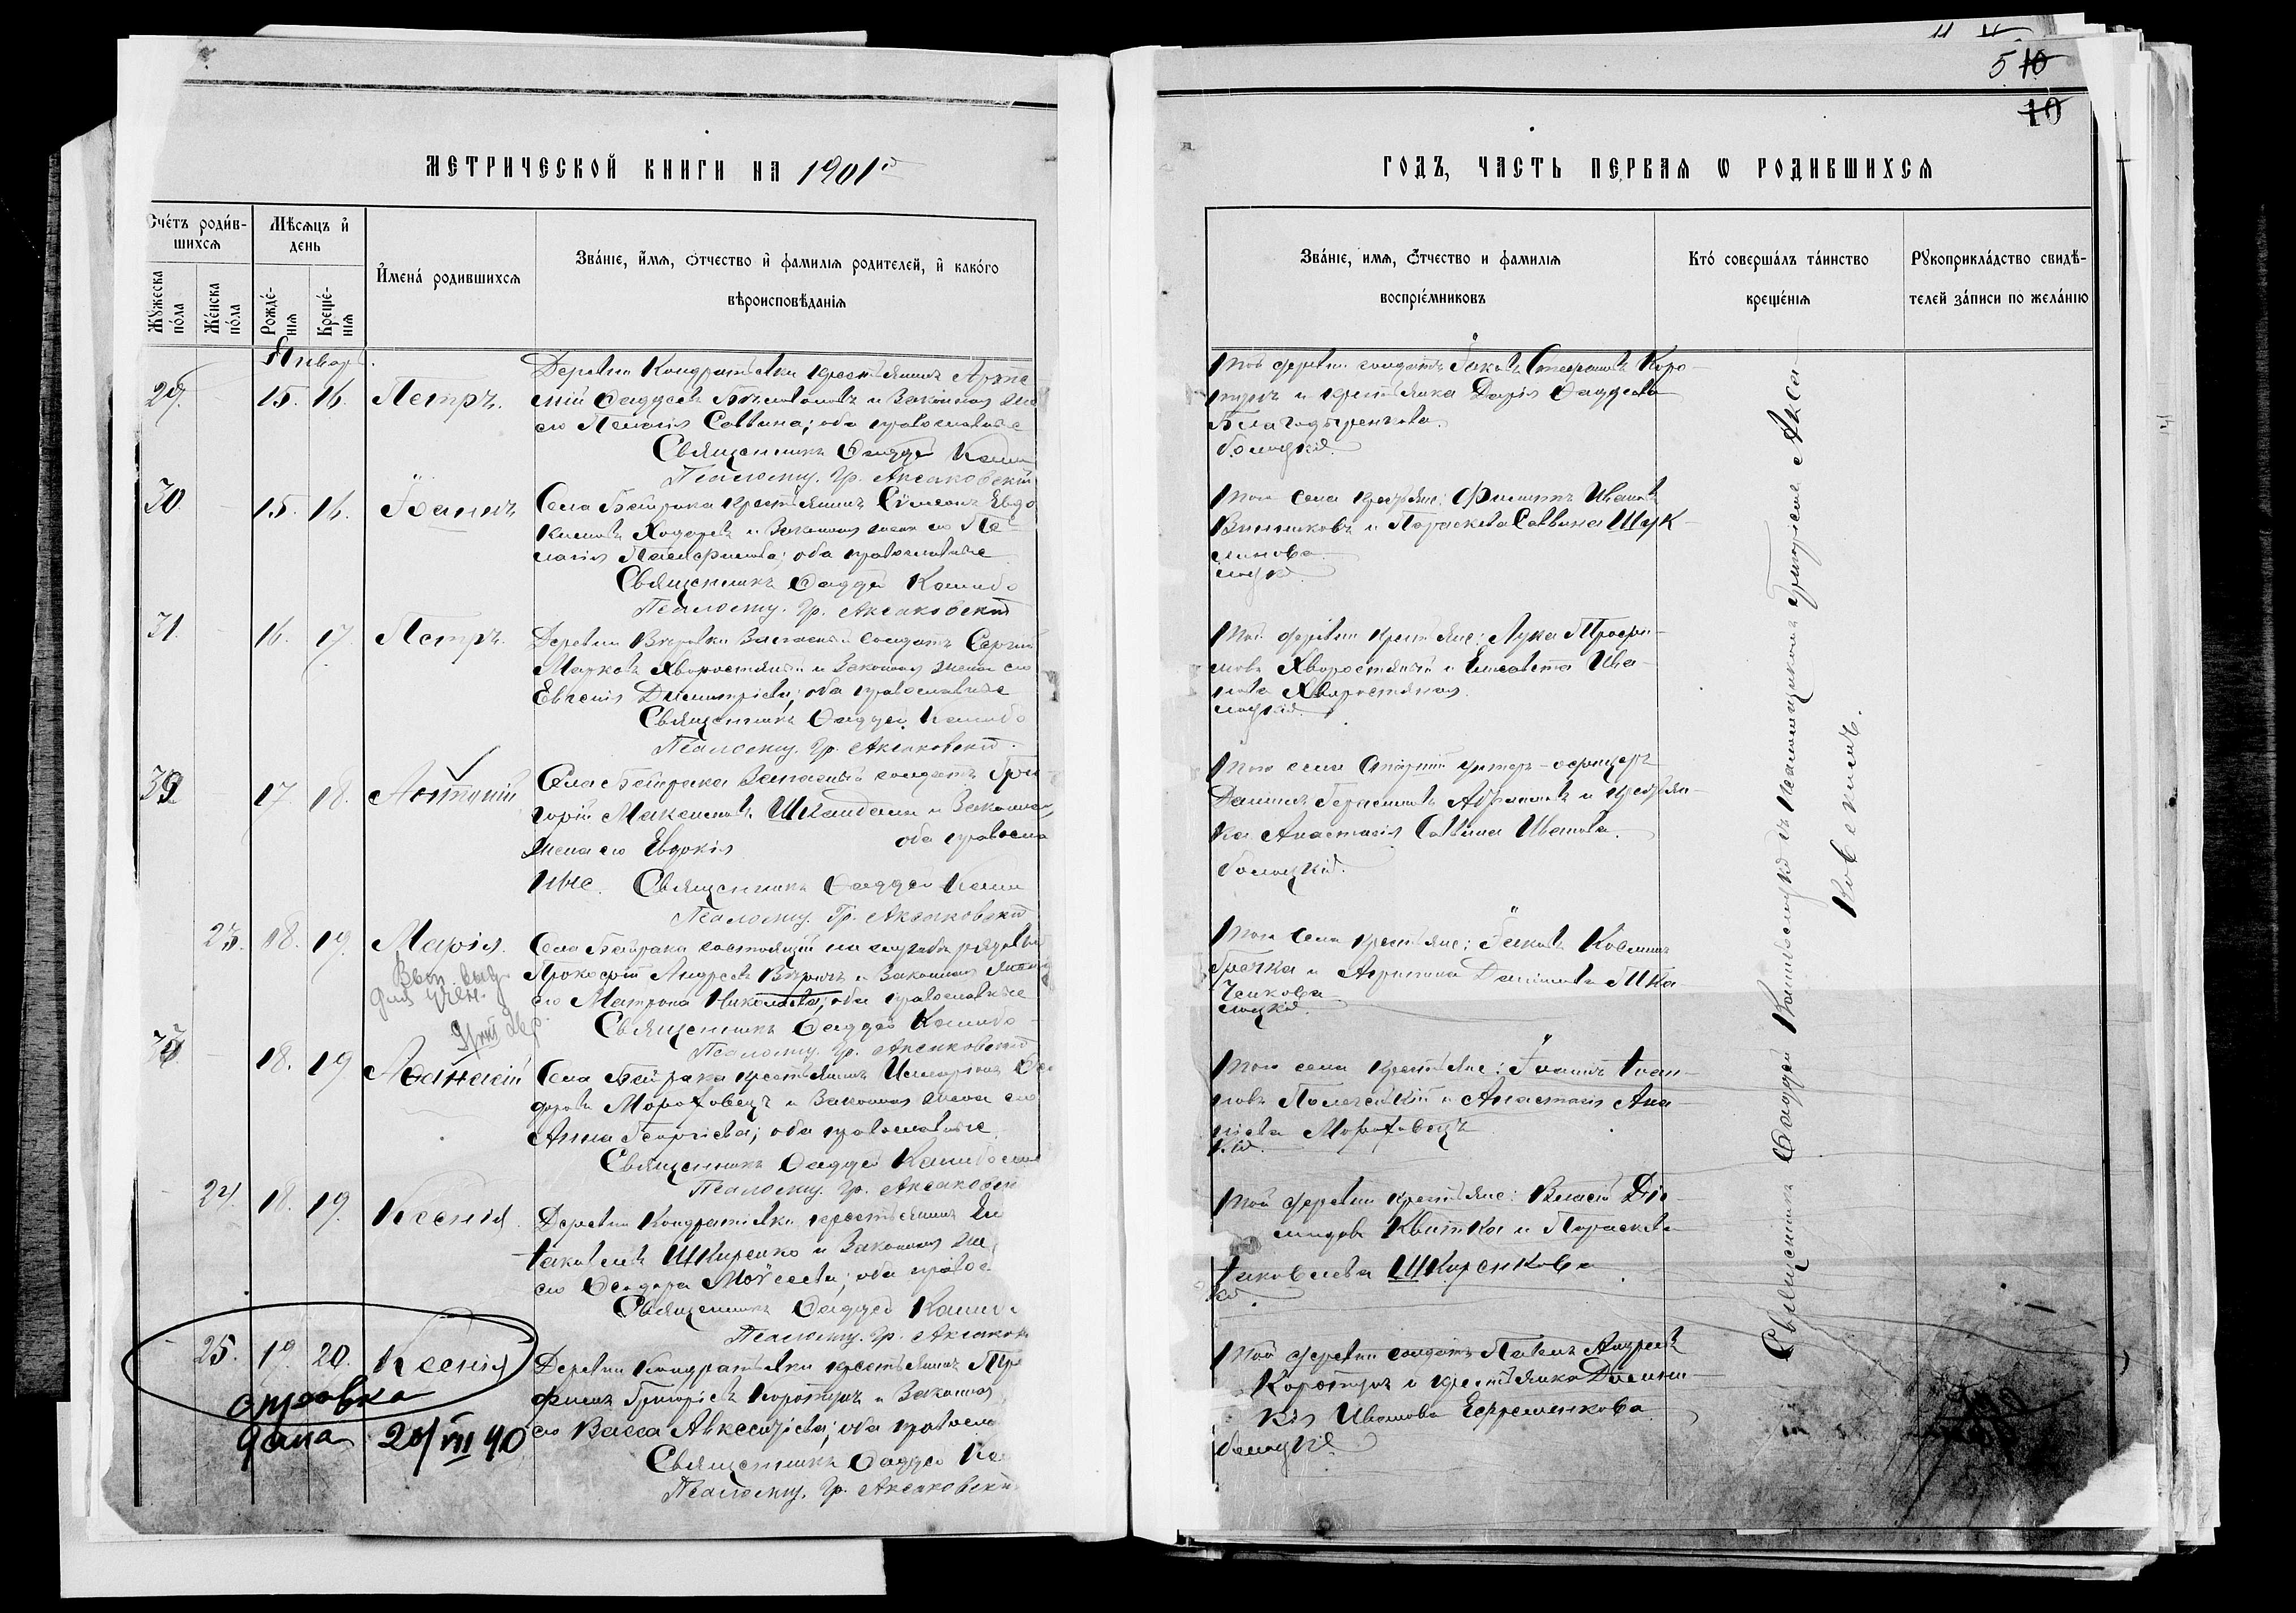 5 10
10
МЕТРИЧЕСКОЙ КНИГИ НА 1901й
ГОДЪ, ЧАСТЬ ПЕРВАЯ Ѡ РОДИВШИХСЯ
Счéтъ роди́в-
шихся
Мѣсяцъ и҆
день
Мꙋжеска
по́ла
Же́нска
по́ла
Рожде́-
нія
Креще́-
нія
И҆мена́ родившихся
Зва́ніе, и҆́мя, ѻ҆́тчество и҆ фамилія родителей, и҆ како́го
вѣроисповѣ́данія
Зва́ніе, имя, ѻ҆́тчество и фамилія
воспрiе́мниковъ
Кто́ соверша́лъ та́инство
креще́нія
Рꙋкоприкла́дство свидѣ́-
телей за́писи по жела́нію
Январь.
29. 15. 16. Петръ.
Деревни Кондратьевки крестьянинъ Арте
мій Фаддеевъ и законная же
его Пелагія Саввина; оба православные
Священникъ Фаддей
Псаломщ. Гр. Аксаковскій
Той деревни солдатъ Іаковъ Стефановъ Коро-
тунъ и крестьянка Дарія Фаддеева
30. 15. 16. Іоаннъ
Села Байрака крестьянинъ Сѵмеонъ Евдо
кимовъ Ходаревъ и законная жена его Пе-
лагія Памфилова; оба православные
Священникъ Фаддей
Псаломщ. Гр. Аксаковскій
Того села крестьяне: Филиппъ Ивановъ
Винниковъ и Параскева Саввина Шук-
линова
31. 16. 17. Петръ.
Деревни Вѣровки запасный солдатъ Сергій
Марковъ Хворостяный и законная жена его
Евгенія Димитріева; оба православные
Священникъ Фаддей
Псаломщ. Гр. Аксаковскій.
Той деревни крестьяне: Лука Трофи-
мовъ Хворостяный и Елисавета Ива-
нова Хворостяная.
32 17. 18. Антоній
Села Байрака запасный солдатъ Гри-
горій Максимовъ Шкандала и законная
жена его Евдокія оба правосла
вные. Священникъ Фаддей
Псаломщ. Гр. Аксаковскій
Того села старшій унтеръ-офицеръ
Даніилъ Герасимовъ Абрамовъ и крестьян-
ка Анастасія Саввина Иванова.
23. 18. 19. Марія.
Села Байрака состоящій на службѣ рядовой
Прокофій Андреевъ и законная жена
его Матрона Николаева; оба православные
Священникъ Фаддей
Псаломщ. Гр. Аксаковскій
Того села крестьяне: Іаковъ Косминъ
Гречка и Агрипина Даніилова Тка
ченкова
33 18. 19 Аѳанасій
Села Байрака крестьянинъ Ѳео
доровъ Мороховецъ и законная жена его
Анна Георгіева; оба православные
Священникъ Фаддей
Псаломщ. Гр. Аксаковскій
Того села крестьяне: Іоаннъ Іоан-
новъ и Анастасія Ана-
ніева Мороховецъ
24. 18. 19. Ксенія.
Деревни Кондратьевки крестьянинъ
Іаковлевъ Шкиренко и законная же
его Ѳеодора Моѷсеева; оба правос
Священникъ Фаддей
Псаломщ. Гр. Аксаков
Той деревни крестьяне: Власій Діо
мидовъ Квитка и Параскева
Іаковлева Шкиренкова
25. 19. 20. Ксенія
справка
дана 20/VII 40
Деревни Кондратьевки крестьянинъ Тро
фимъ Григоріевъ Коротунъ и законная
его Васса Авксентіева; оба правосла
Священникъ Фаддей
Псаломщ. Гр. Аксаковскій
Той деревни солдатъ Павелъ Андреевъ
Коротунъ и крестьянка Домни-
кія Иванова Ефременкова
Священникъ Фаддей съ псаломщикомъ Григоріемъ Акса-
ковскимъ.